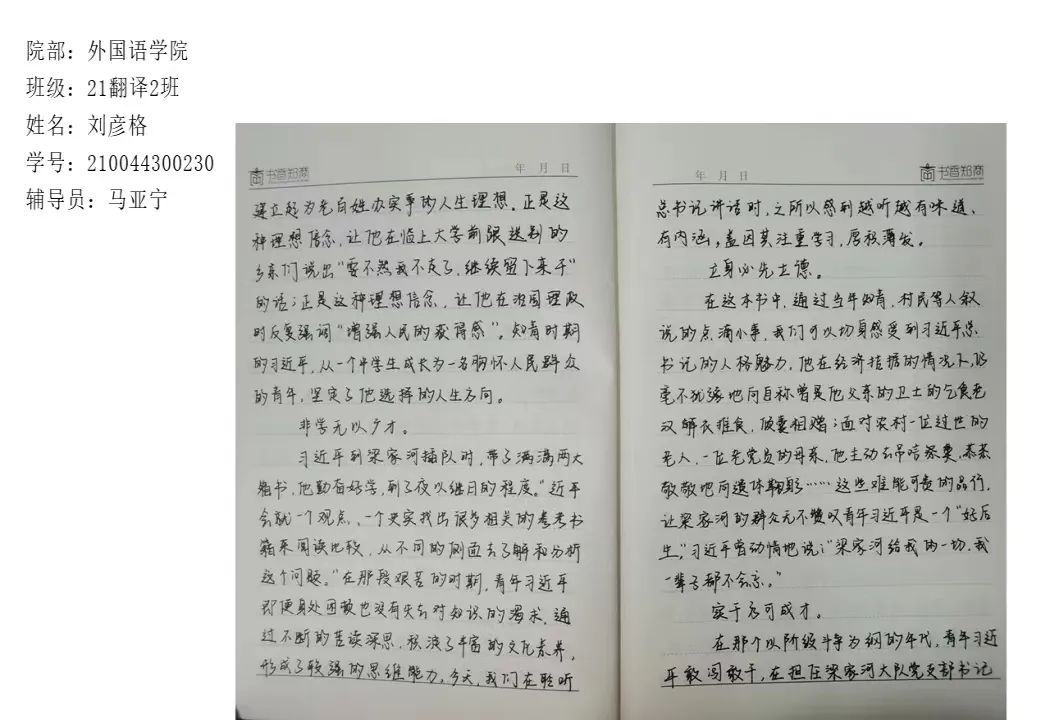 院部：外国语学院
班级：21翻译2班
姓名：刘彦格
学号：210044300230
辅导员：马亚宁
书香知商
年 月 日
建立起为老百姓办实事的人生理想。正是这
种理想信念，让他在临上大学前跟送别的
乡亲们说出“要不然我不走了，继续留下来干”
的话；正是这种理想信念，让他在治国理政
时反复强调“增强人民的获得感”。知青时期
的习近平，从一个中学生成长为一名胸怀人民群众
的青年，坚定了他选择的人生方向。
非学无以广才。
习近平到梁家河插队时，带了满满两大
箱书，他勤奋好学，到了夜以继日的程度。“近平
会就一个观点、一个史实找出很多相关的参考书
籍来阅读比较，从不同的侧面去了解和分析
这个问题。”在那段艰苦的时期，青年习近平
即便身处困顿也没有失去对知识的渴求，通
过不断的苦读深思，积淀了丰富的文化素养，
形成了较强的思维能力。今天，我们在聆听
年 月 日
书香知商
总书记讲话时，之所以感到越听越有味道、
有内涵，盖因其注重学习，厚积薄发。
立身必先立德。
在这本书中，通过当年知青，村民等人叙
说的点滴小事，我们可以切身感受到习近平总
书记的人格魅力，他在经济拮据的情况下，仍
毫不犹豫地向自称曾是他父亲的卫士的乞食老
汉解衣推食，倾囊相赠；面对农村一位过世的
老人，一位老党员的母亲，他主动去吊唁祭奠，恭恭
敬敬地向遗体鞠躬……这些难能可贵的品行，
让梁家河的群众无不赞叹青年习近平是一个“好后
生”，习近平曾动情地说：“梁家河给我的一切，我
一辈子都不会忘。”
实干方可成才。
在那个以阶级斗争为纲的年代，青年习近
平敢闯敢干，在担任梁家河大队党支部书记